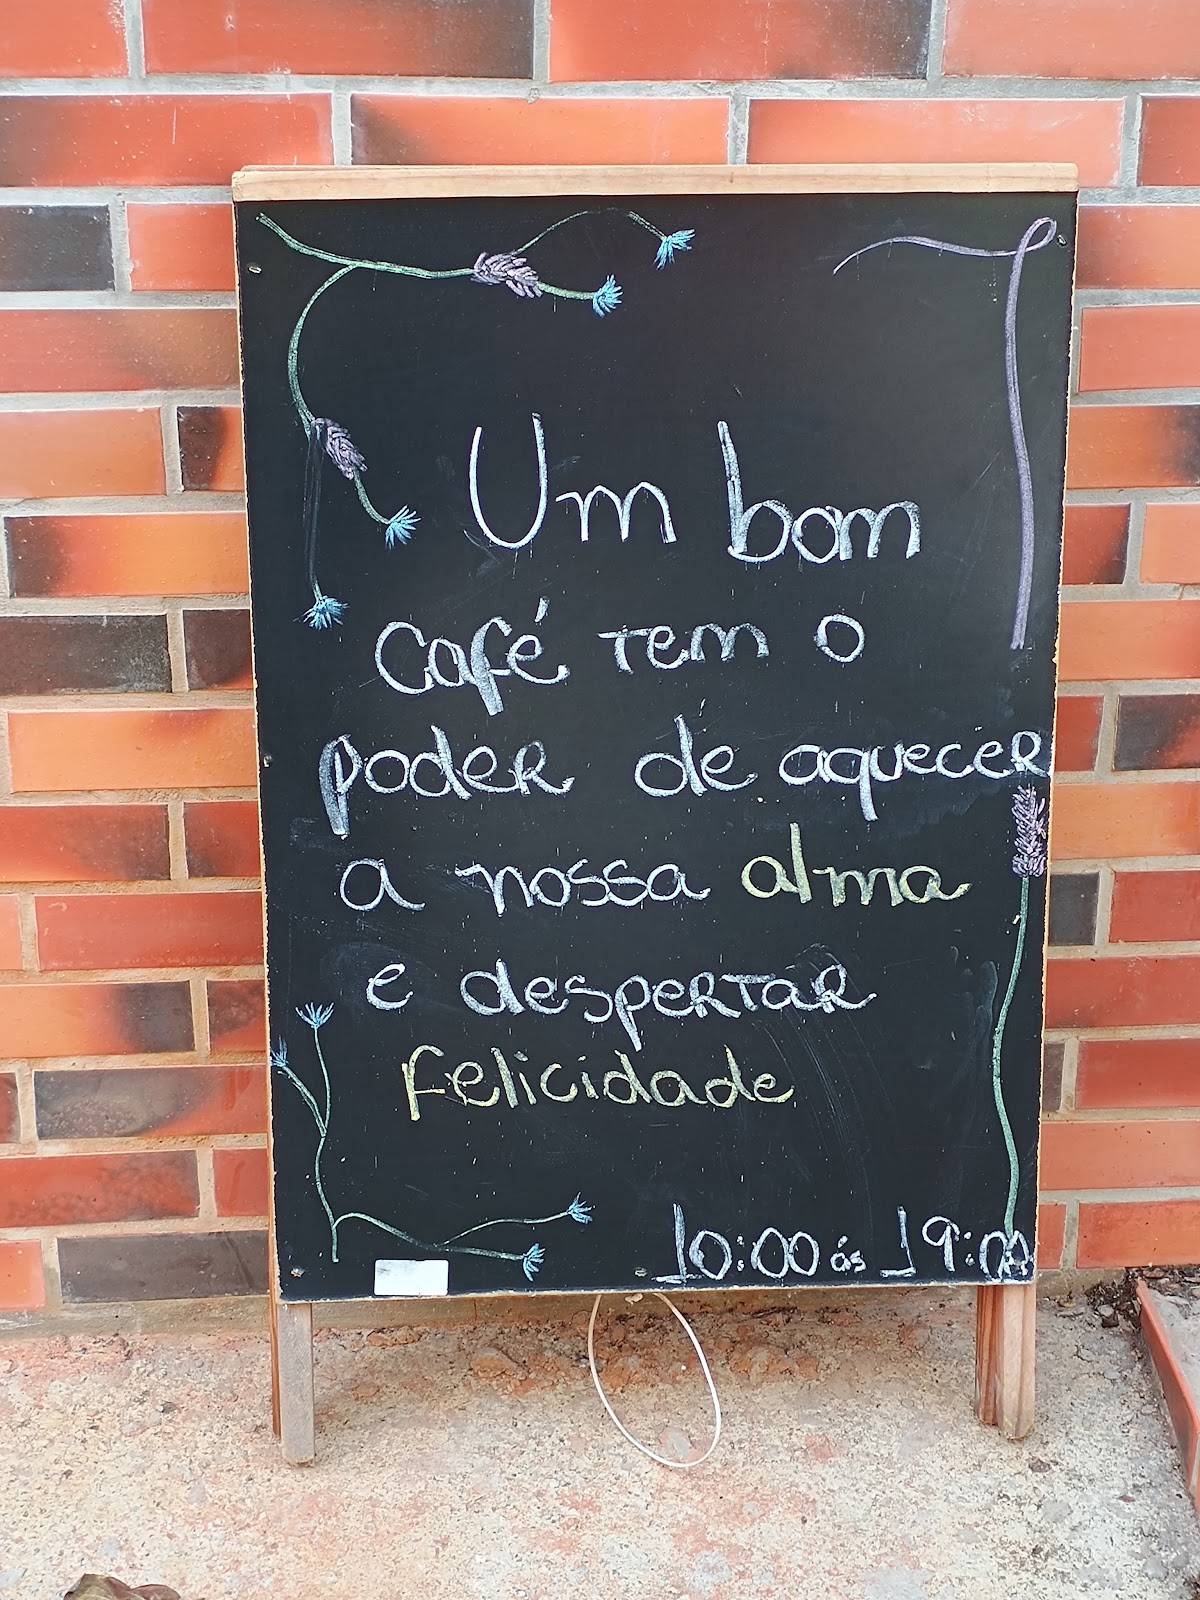 Um bom
Café tem o
poder de aquecer
a nossa alma
e despertar
felicidade
10:00 ás 19:00